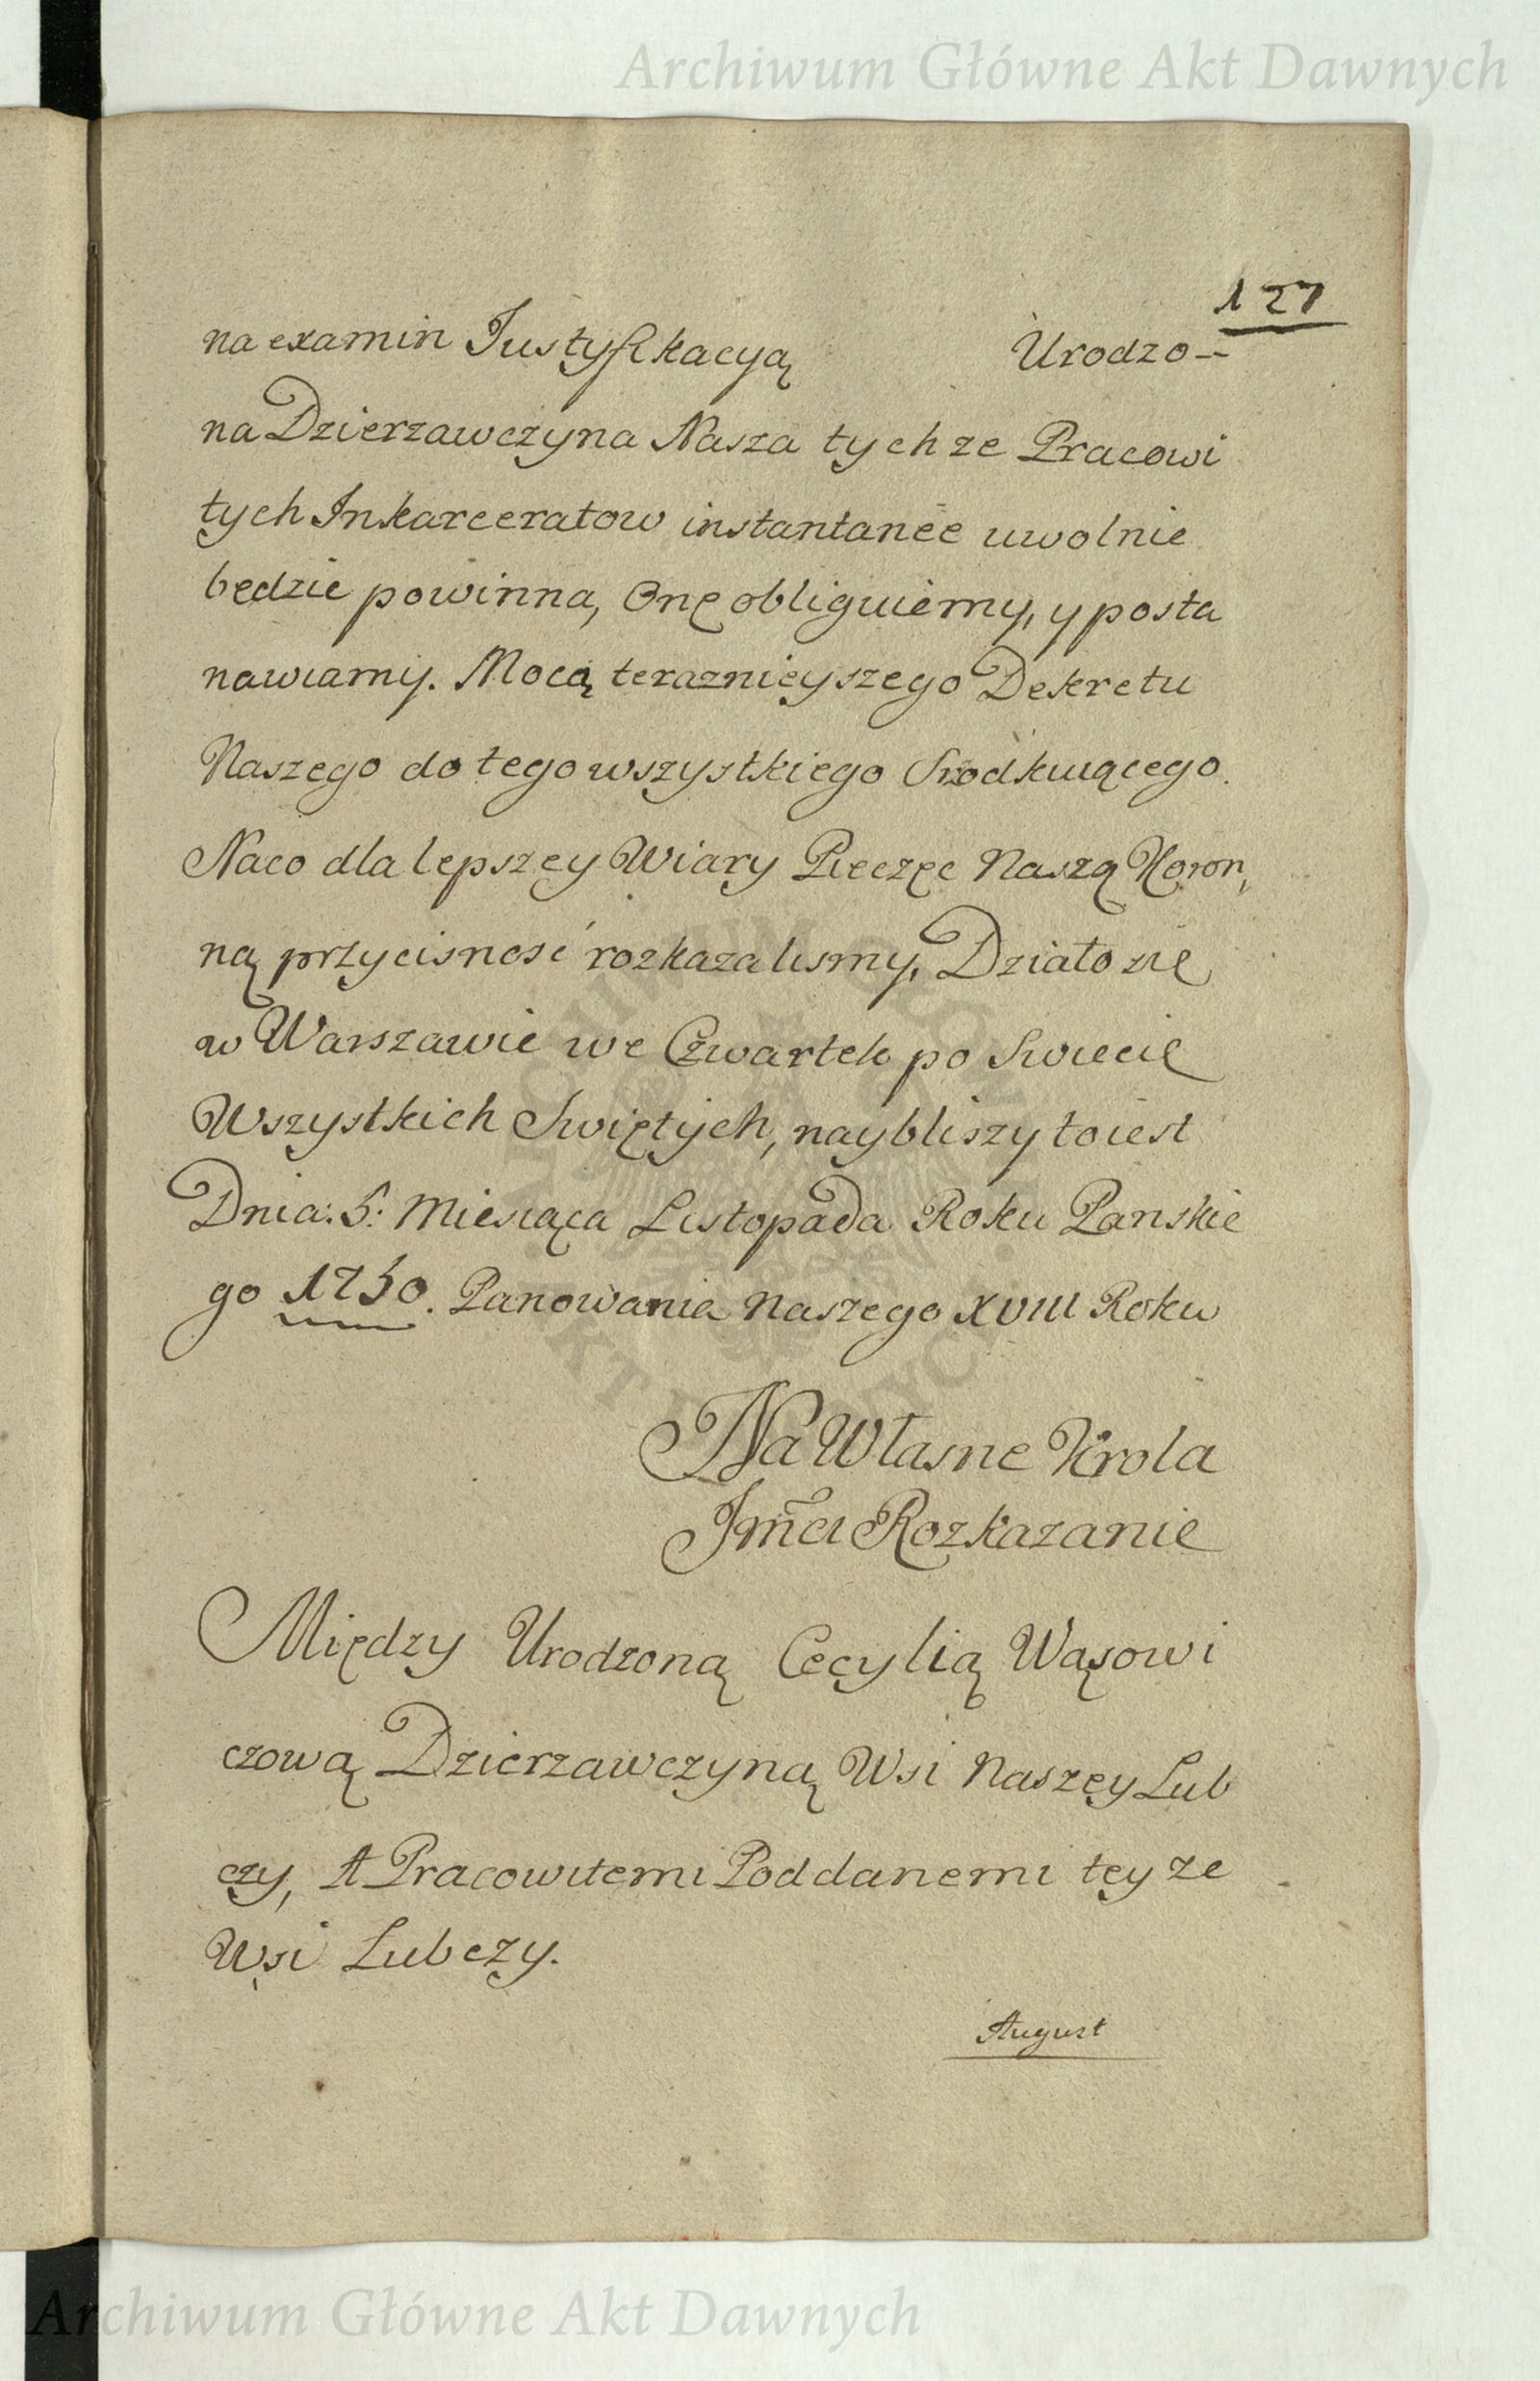 Archiwum Główne Akt Dawnych
127
na examin Justyfikacyą Urodzo--
na Dzierzawczyna Nasza tychze Pracowi
tych Inkarceratow instantanèe uwolnic
będzie powinna, Onę obliguiemy, y posta
nawiamy. Mocą teraznieyszego Dekretu
Naszego do tego wszystkiego Srodkuiącego.
Naco dla lepszey Wiary Pieczęc Naszą Koron,
ną przycisnąsć rozkazalismy, Działo się
w Warszawie we Czwartek po Swięcie
Wszystkich Swiętych, naybliszy to iest
Dnia: 5: Miesiąca Listopada Roku Panskie
go 1750. Panowania Naszego XVIII Roku
Na Własne Krola
Jmci Rozkazanie
Między Urodzoną Cecylią Wąsowi
czową Dzierzawczyną Wsi Naszey Lub
czy, A Pracowitemi Poddanemi teyze
Wsi Lubczy.
August
Archiwum Główne Akt Dawnych